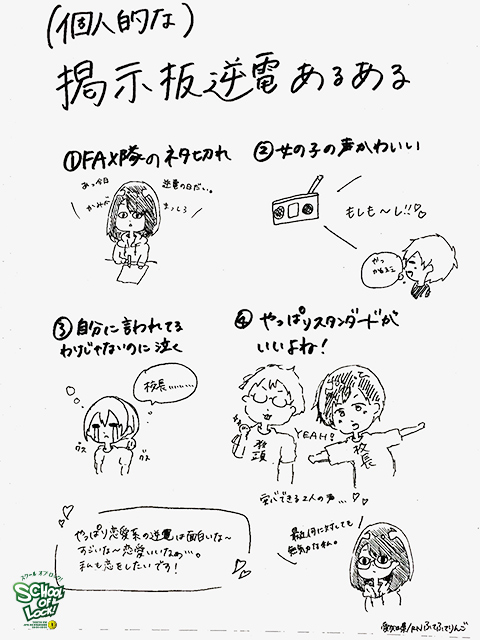 (個人的な)
掲示板逆電あるある
①FAX隊のネタ切れ
あっ今日
逆電の日だい。
かみが
まっしろ
②女の子の声かわいい
もしも〜し!!♡♡
やっ
かわよ
③自分に言われてる
わけじゃないのに泣く
校長ぃぃぃ…
グス
グス
④やっぱりスタンダードが
いいよね!
YEAH!
教頭
校長
安心できる2人の声…♡♡
やっぱり恋愛系の逆電は面白いな〜
すごいな〜恋愛いいなぁ…。
私も恋をしたいです!
最近何に対しても
無気力な私。
スクール オブ ロック!
SCHOOL
OF
LOCK!
愛知県/RNふてふてりんご